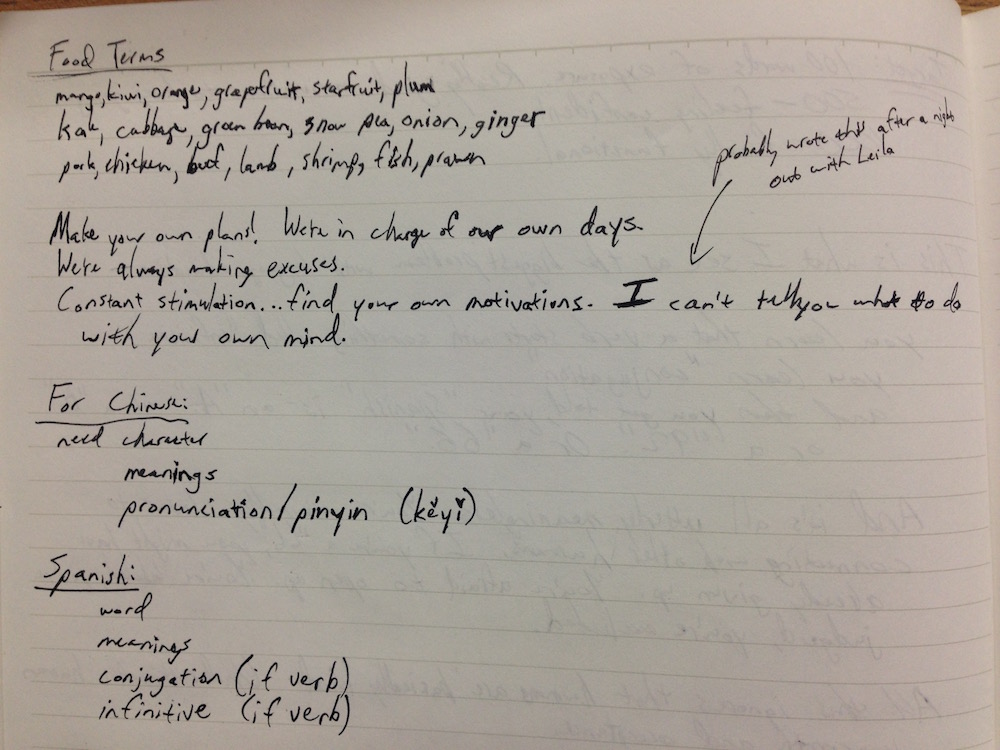 Food Terms
mango, kiwi, orange, grapefruit, starfruit, plum
kale, cabbage, green bean, snow pea, onion, ginger
pork, chicken, beef, lamb, shrimp, fish, prawn
probably wrote this after a night
out with Leila
Make your own plans! We're in charge of our own days.
We're always making excuses.
Constant stimulation...find your own motivations. I can't tell you what to do
with your own mind.
For Chinese:
need character
meanings
pronunciation/pinyin (kěyǐ)
Spanish:
word
meanings
conjugation (if verb)
infinitive (if verb)